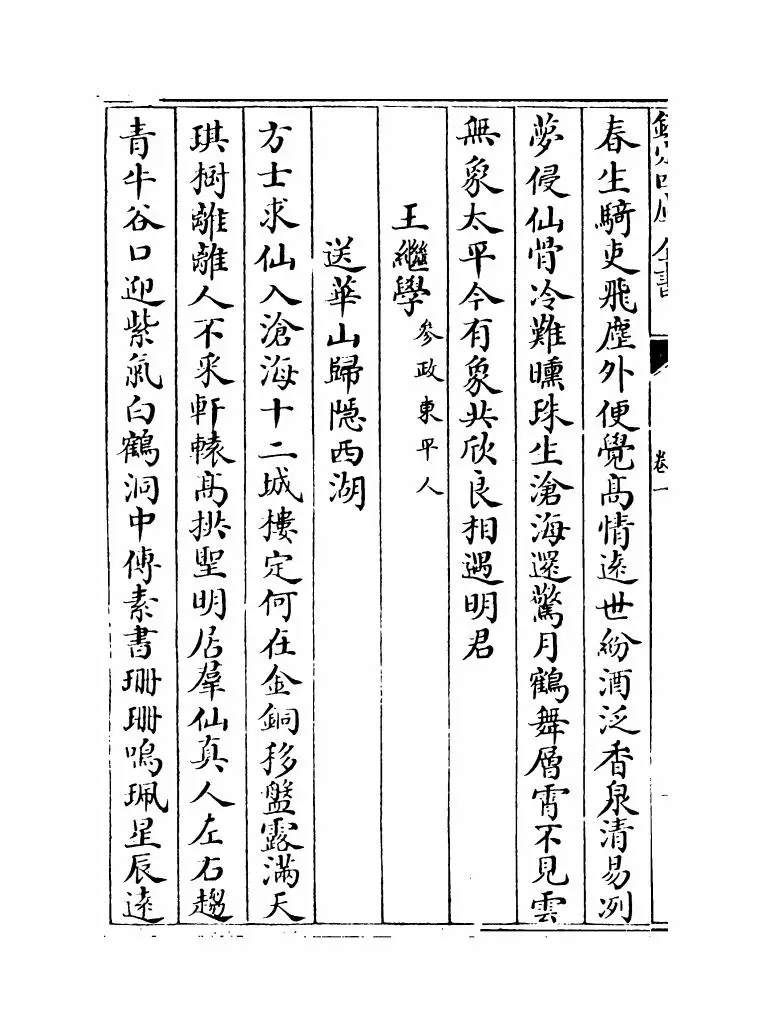 欽定四庫全書
卷一
春生騎吏飛塵外便覺髙情逺世紛酒泛香泉清易冽
夢侵仙骨冷難曛珠生滄海還驚月鶴舞層霄不見雲
無象太平今有象共欣良相遇明君
王繼學參政東平人
送華山歸隠西湖
方士求仙入滄海十二城樓定何在金銅移盤露滿天
琪樹離離人不采軒轅髙拱聖明居羣仙真人左右趨
青牛谷口迎紫氣白鶴洞中傳素書珊珊鳴珮星辰逺